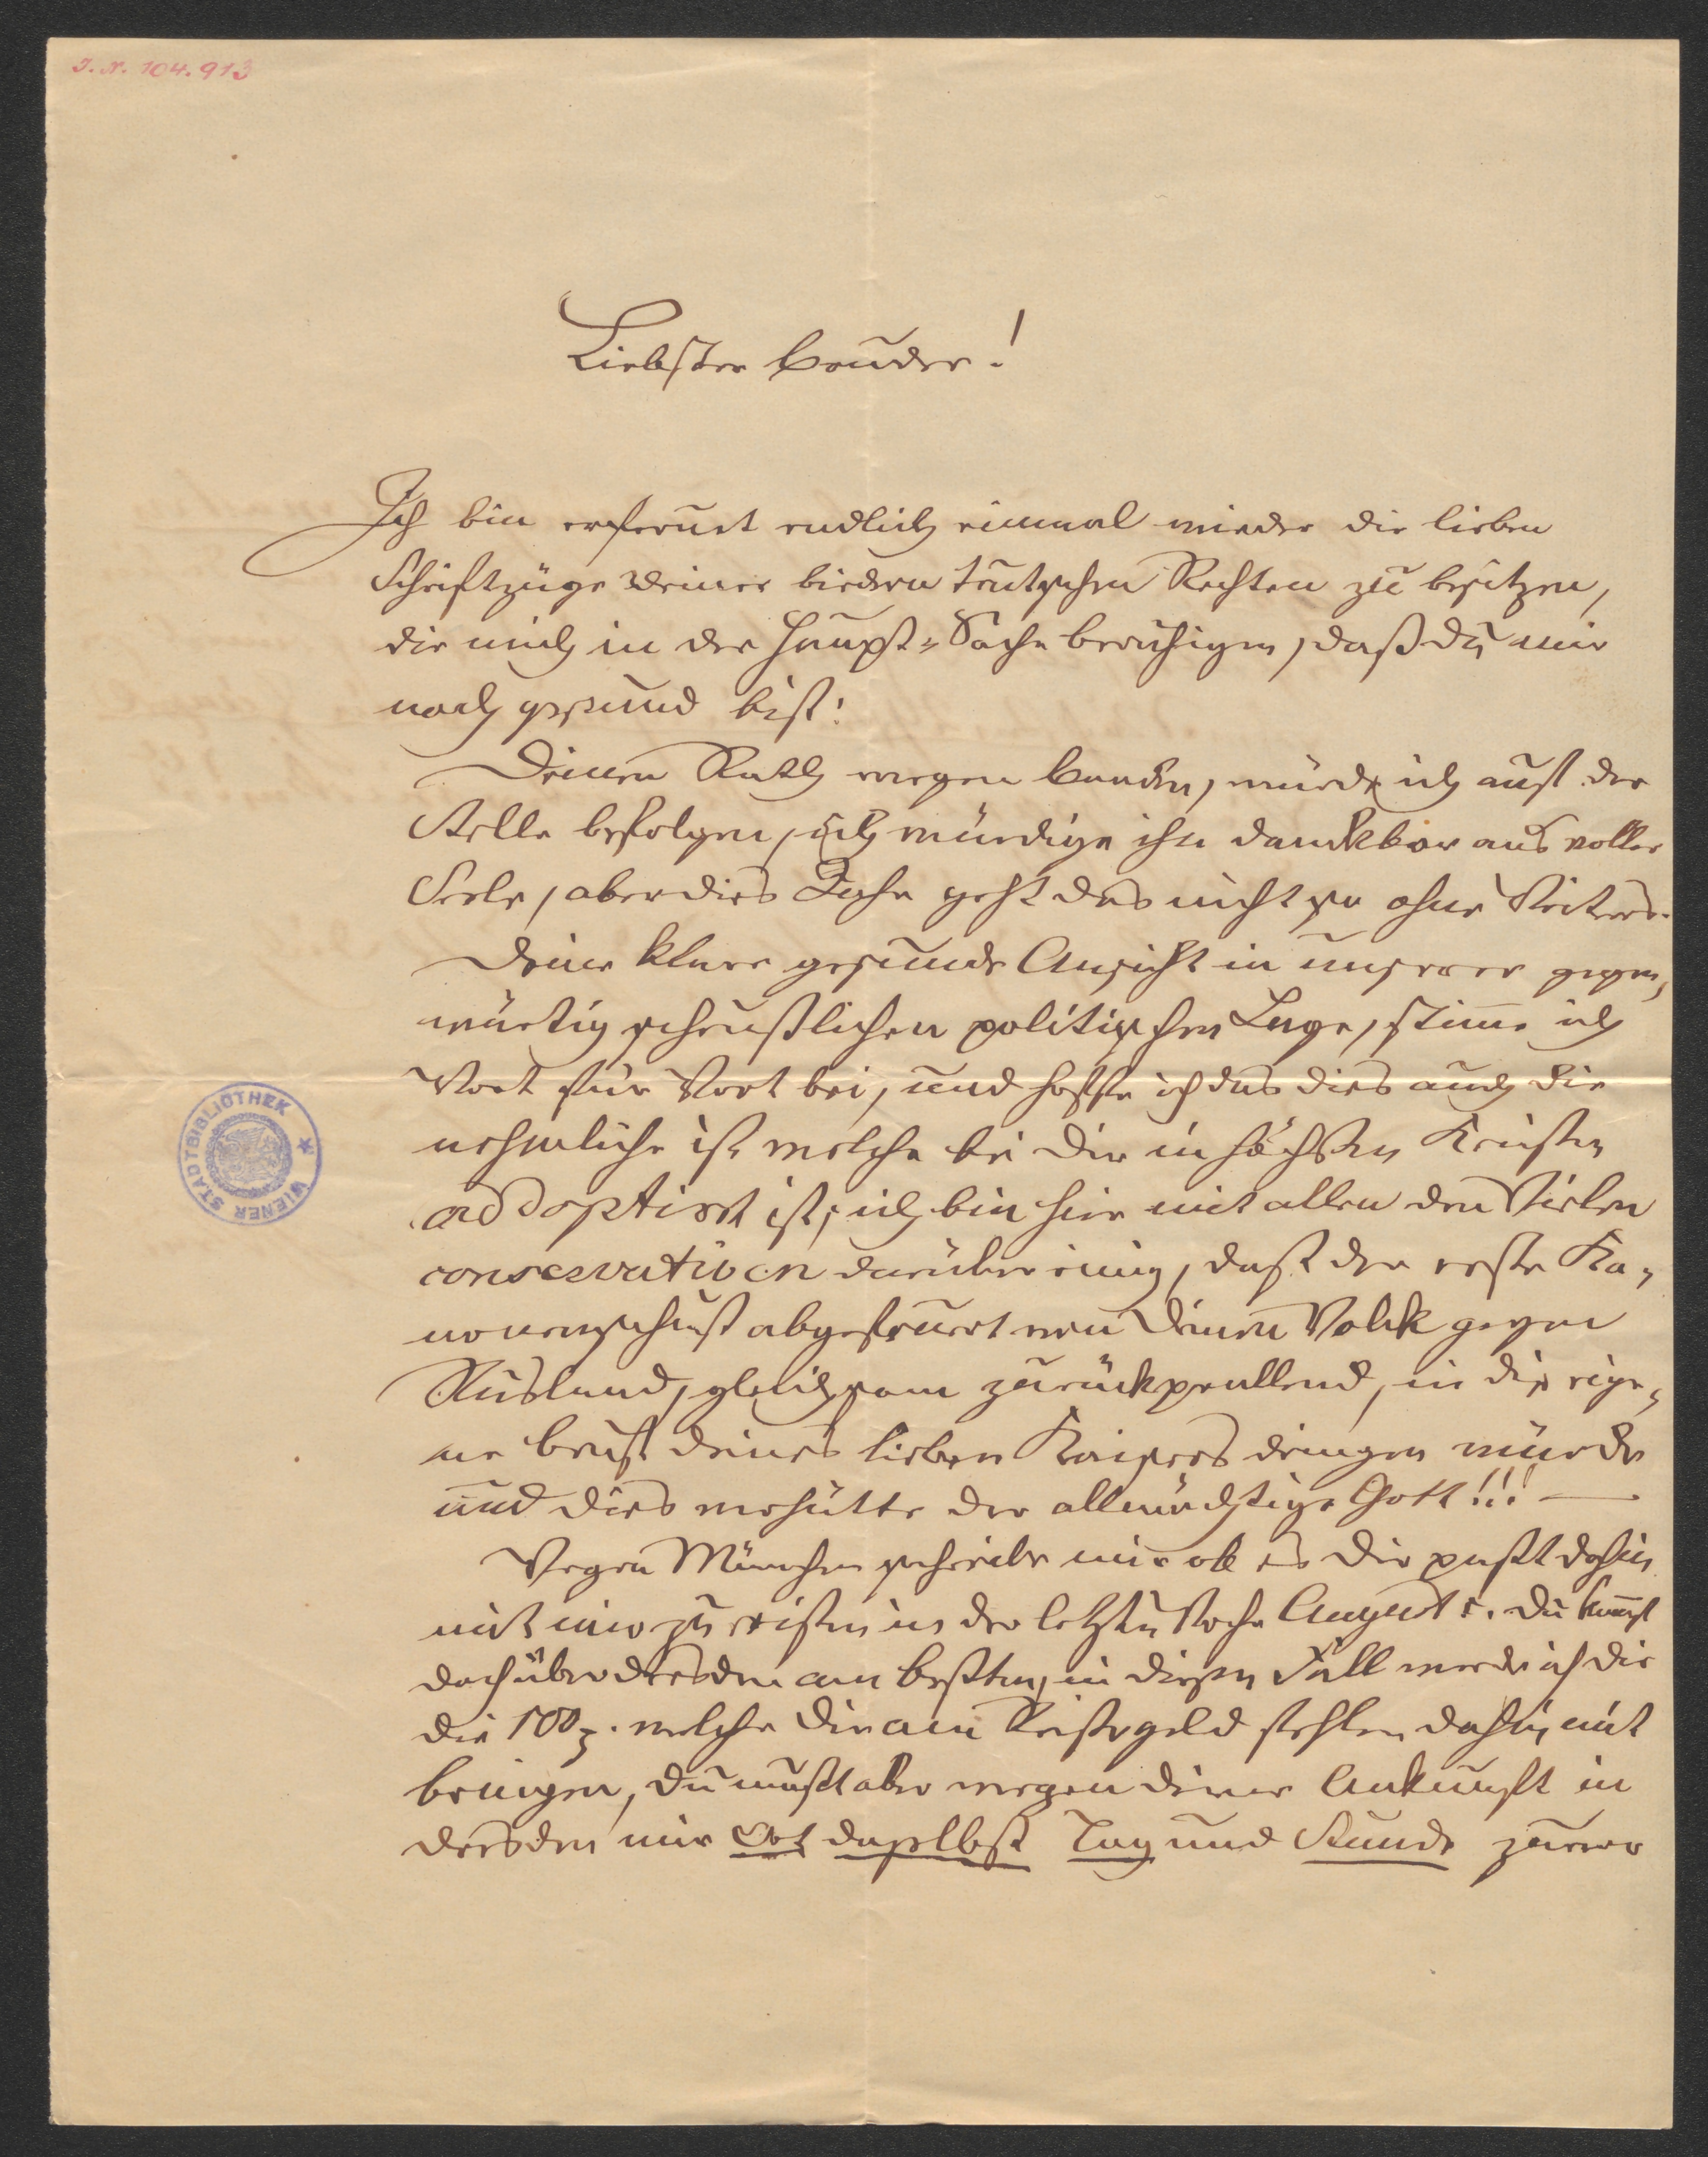 J. N. 104.913
Liebster Bruder!
Ich bin erfreut endlich einmal wieder die lieben
Schriftzüge Deiner biedern teutschen Rechten zu besitzen,
die mich in der Haupt-Sache beruhigen, daß Du mir
noch gesund bist!
Deinen Rath wegen Baaden, würde ich auf der
Stelle befolgen, ich würdige ihn dankbar aus voller
Seele, aber dies Jahr geht das nicht so ohne Weiteres.
Deine klare gesunde Ansicht in unserer gegen,
wärtig scheußlichen politischen Lage, stimme ich
Wort für Wort bei, und hoffe ich das dies auch die
nehmliche ist welche bei Dir in höchsten Kreisen
addoptiert ist, ich bin hier mit allen den Vielen
conservativen darüber einig, daß der erste Ka-
nonenschuß abgefeuert von Deinem Volk gegen
Rusland, gleichsam zurückprallend, in die eige-
ne Brust deines lieben Kaisers dringen würde
und dies verhütte der allmächtige Gott!!! —
Wegen München schreibe mir ob es Dir paßt dahin
mit mir zu reisen in der letzten Woche August. Du kommst
doch über Dresden am besten, in diesem Fall werde ich Dir
die 100 welche Dir am Reisegeld fehlen dahin mit
bringen, Du mußt aber wegen Deiner Ankunft in
Dresden mir Ort daselbst Tag und Stunde zuvor
WIENER STADTBIBLIOTHEK